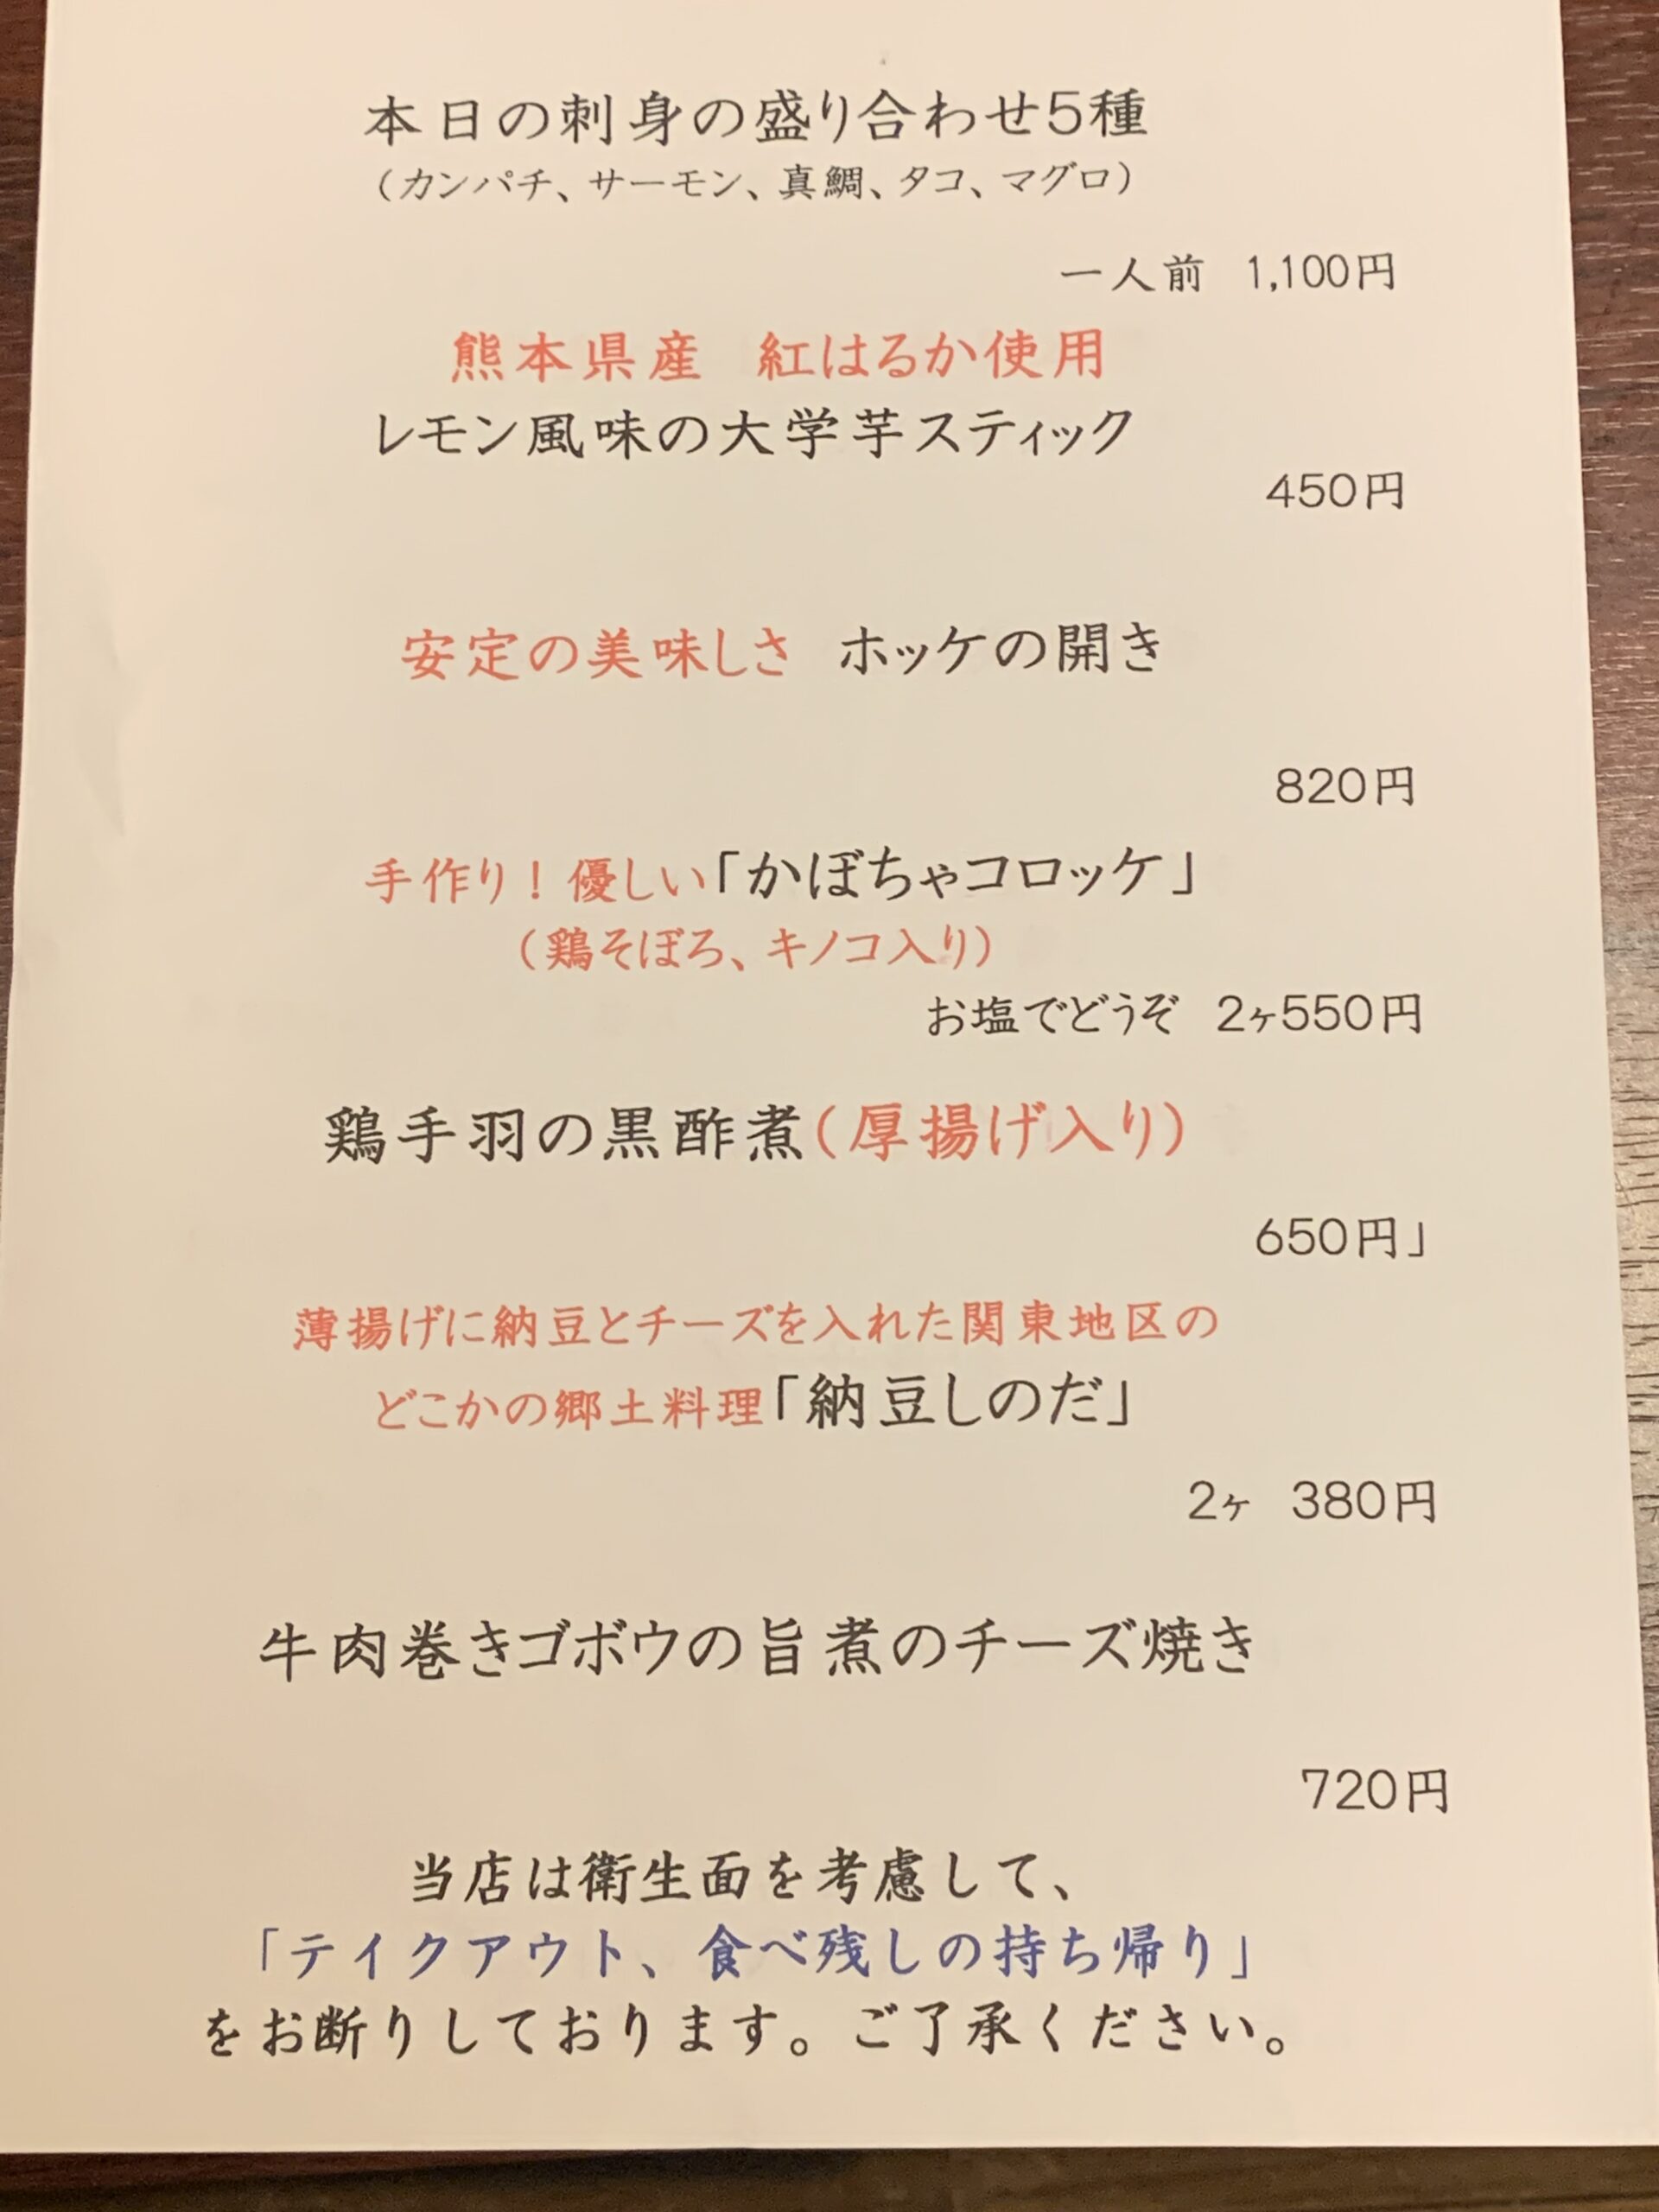 本日の刺身の盛り合わせ5種
（カンパチ、サーモン、真鯛、タコ、マグロ）
一人前 1,100円
熊本県産 紅はるか使用
レモン風味の大学芋スティック
450円
安定の美味しさ ホッケの開き
820円
手作り！優しい「かぼちゃコロッケ」
（鶏そぼろ、キノコ入り）
お塩でどうぞ 2ヶ550円
鶏手羽の黒酢煮（厚揚げ入り）
650円」
薄揚げに納豆とチーズを入れた関東地区の
どこかの郷土料理「納豆しのだ」
2ヶ 380円
牛肉巻きゴボウの旨煮のチーズ焼き
720円
当店は衛生面を考慮して、
「テイクアウト、食べ残しの持ち帰り」
をお断りしております。ご了承ください。